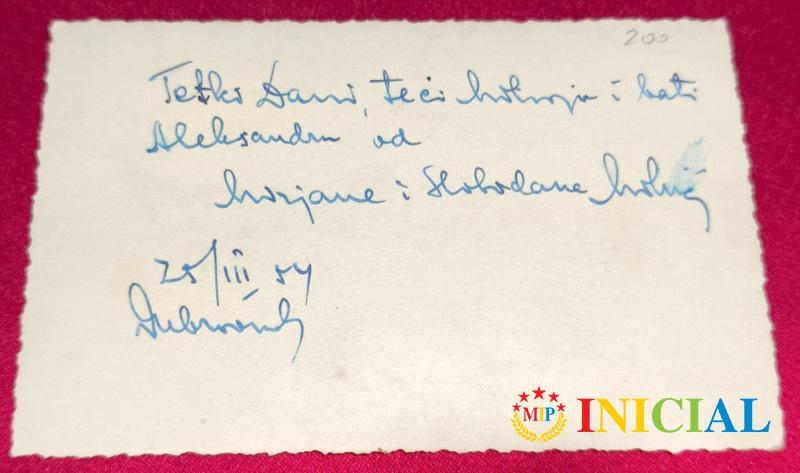 200
Tetki Dani, teči i bati
Aleksandru od
Mirjane i Slobodane
25/III 54
Dubrovnik
MIP INICIAL